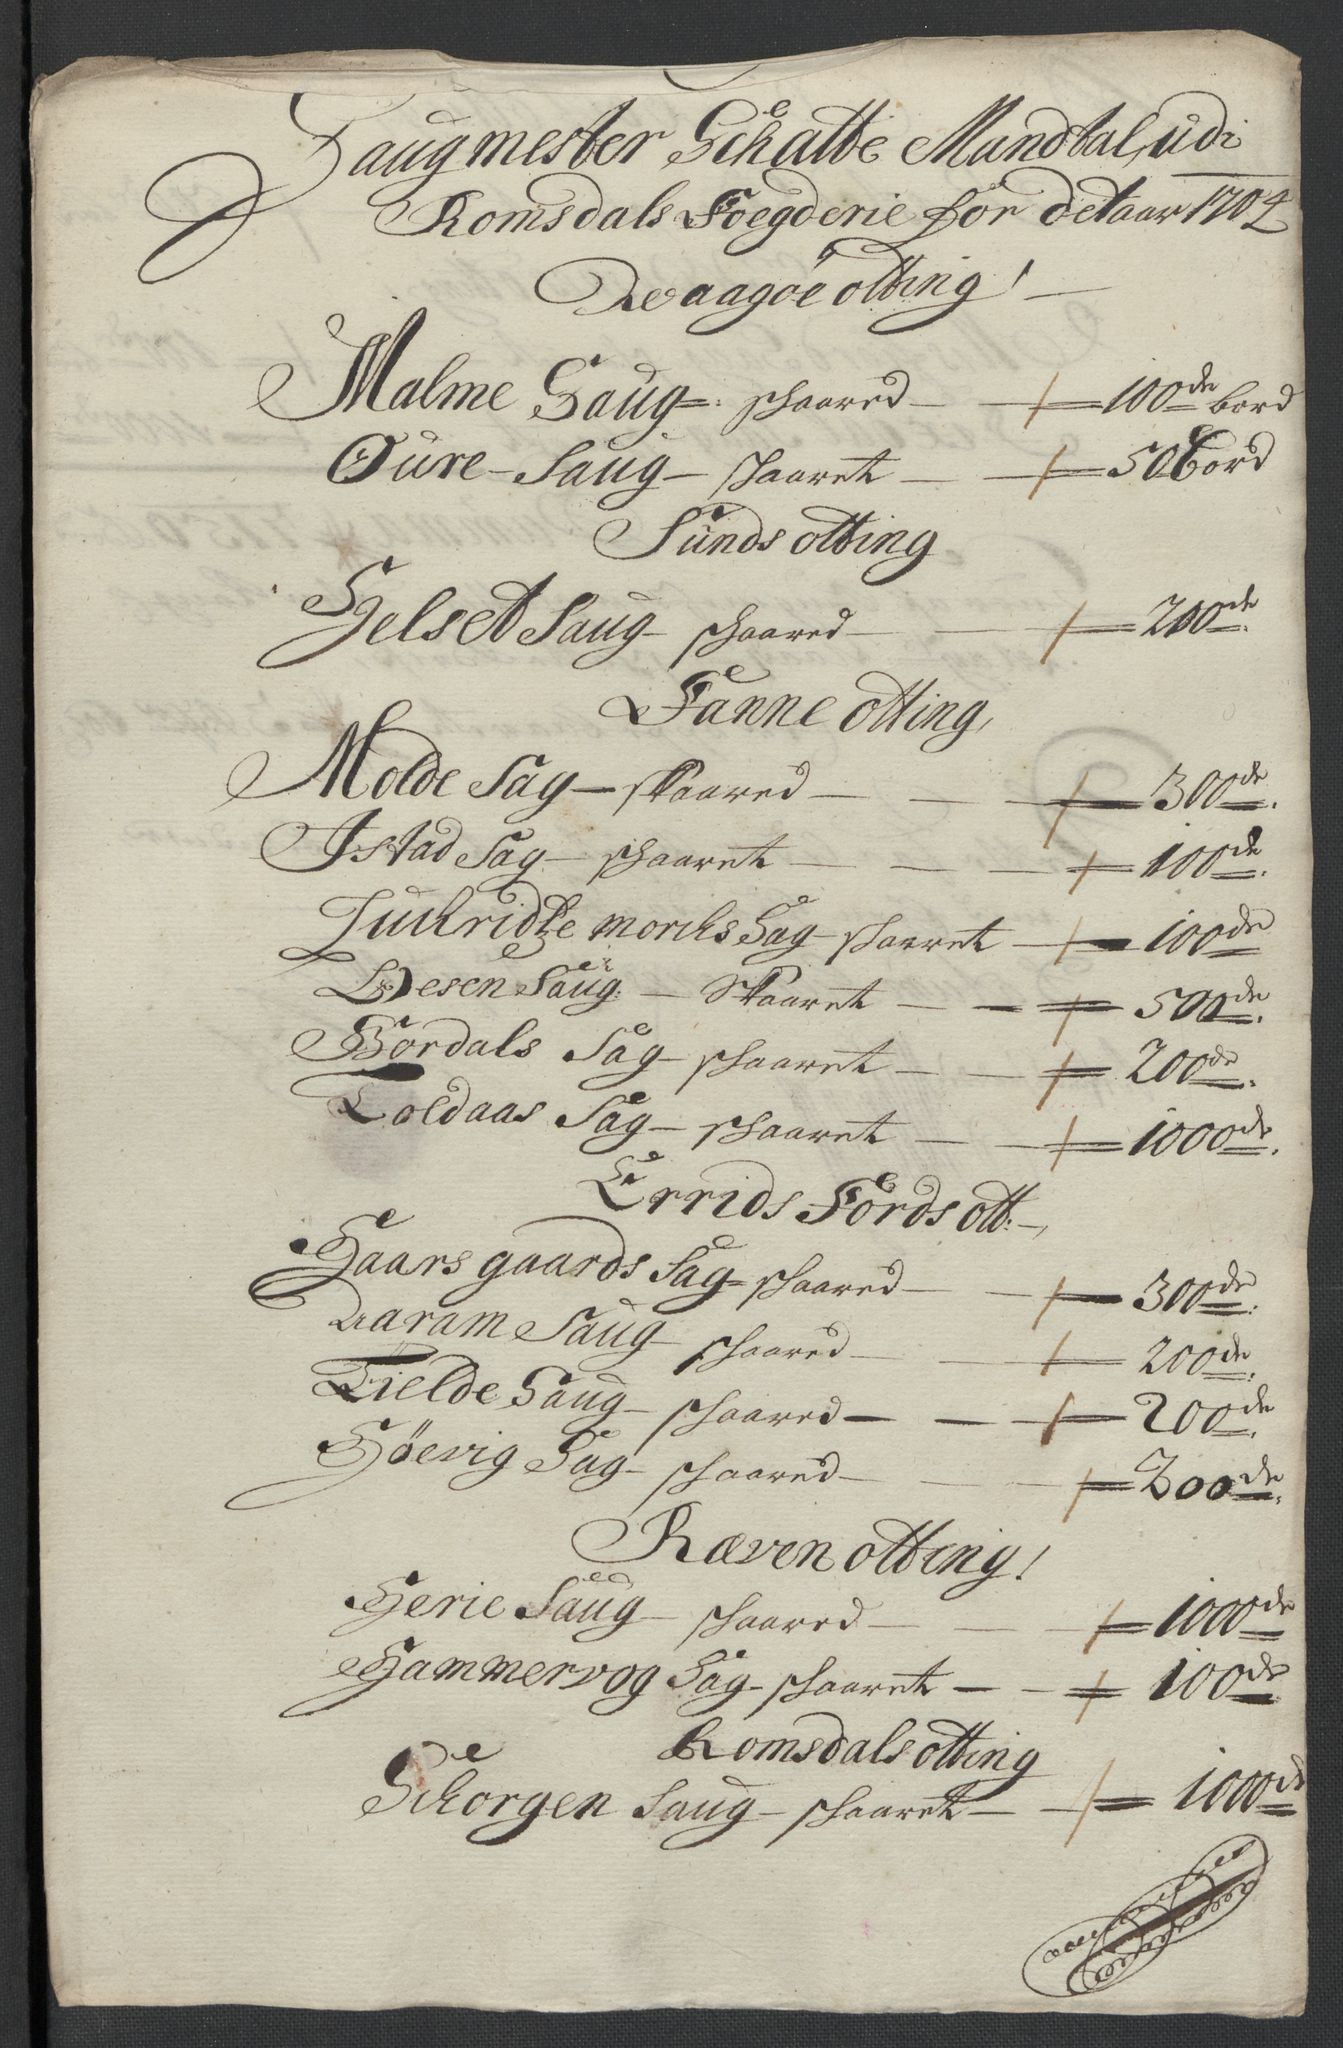 Saugmester Schatte Mandtal, udi
Romsdals Foegderie for det aar 1704
Waagøe otting!
Malme Saug skaared 100de bord
Øure Saug skaaret 50 bord
Sunds otting
Hjelset Saug skaared 200de
Fanne otting
Molde Sag skaared 300de
Istad Sag skaaret 100de
morchs Sag skaaret 100de
Saug skaaret 500de
Hordals Sag skaaret 200de
Coldaas Sag skaaret 1000de
Errids Fords ott:
Haars gaards Sag skaared 300de
Saug skaared 200de
Fielde Saug skaared 200de
Høevig Sag skaared 200de
Ræven otting!
Herie Saug skaared 1000de
Hammervog Sag skaaret 100de
Romsdals otting
Schorgen Saug skaaret 1000de